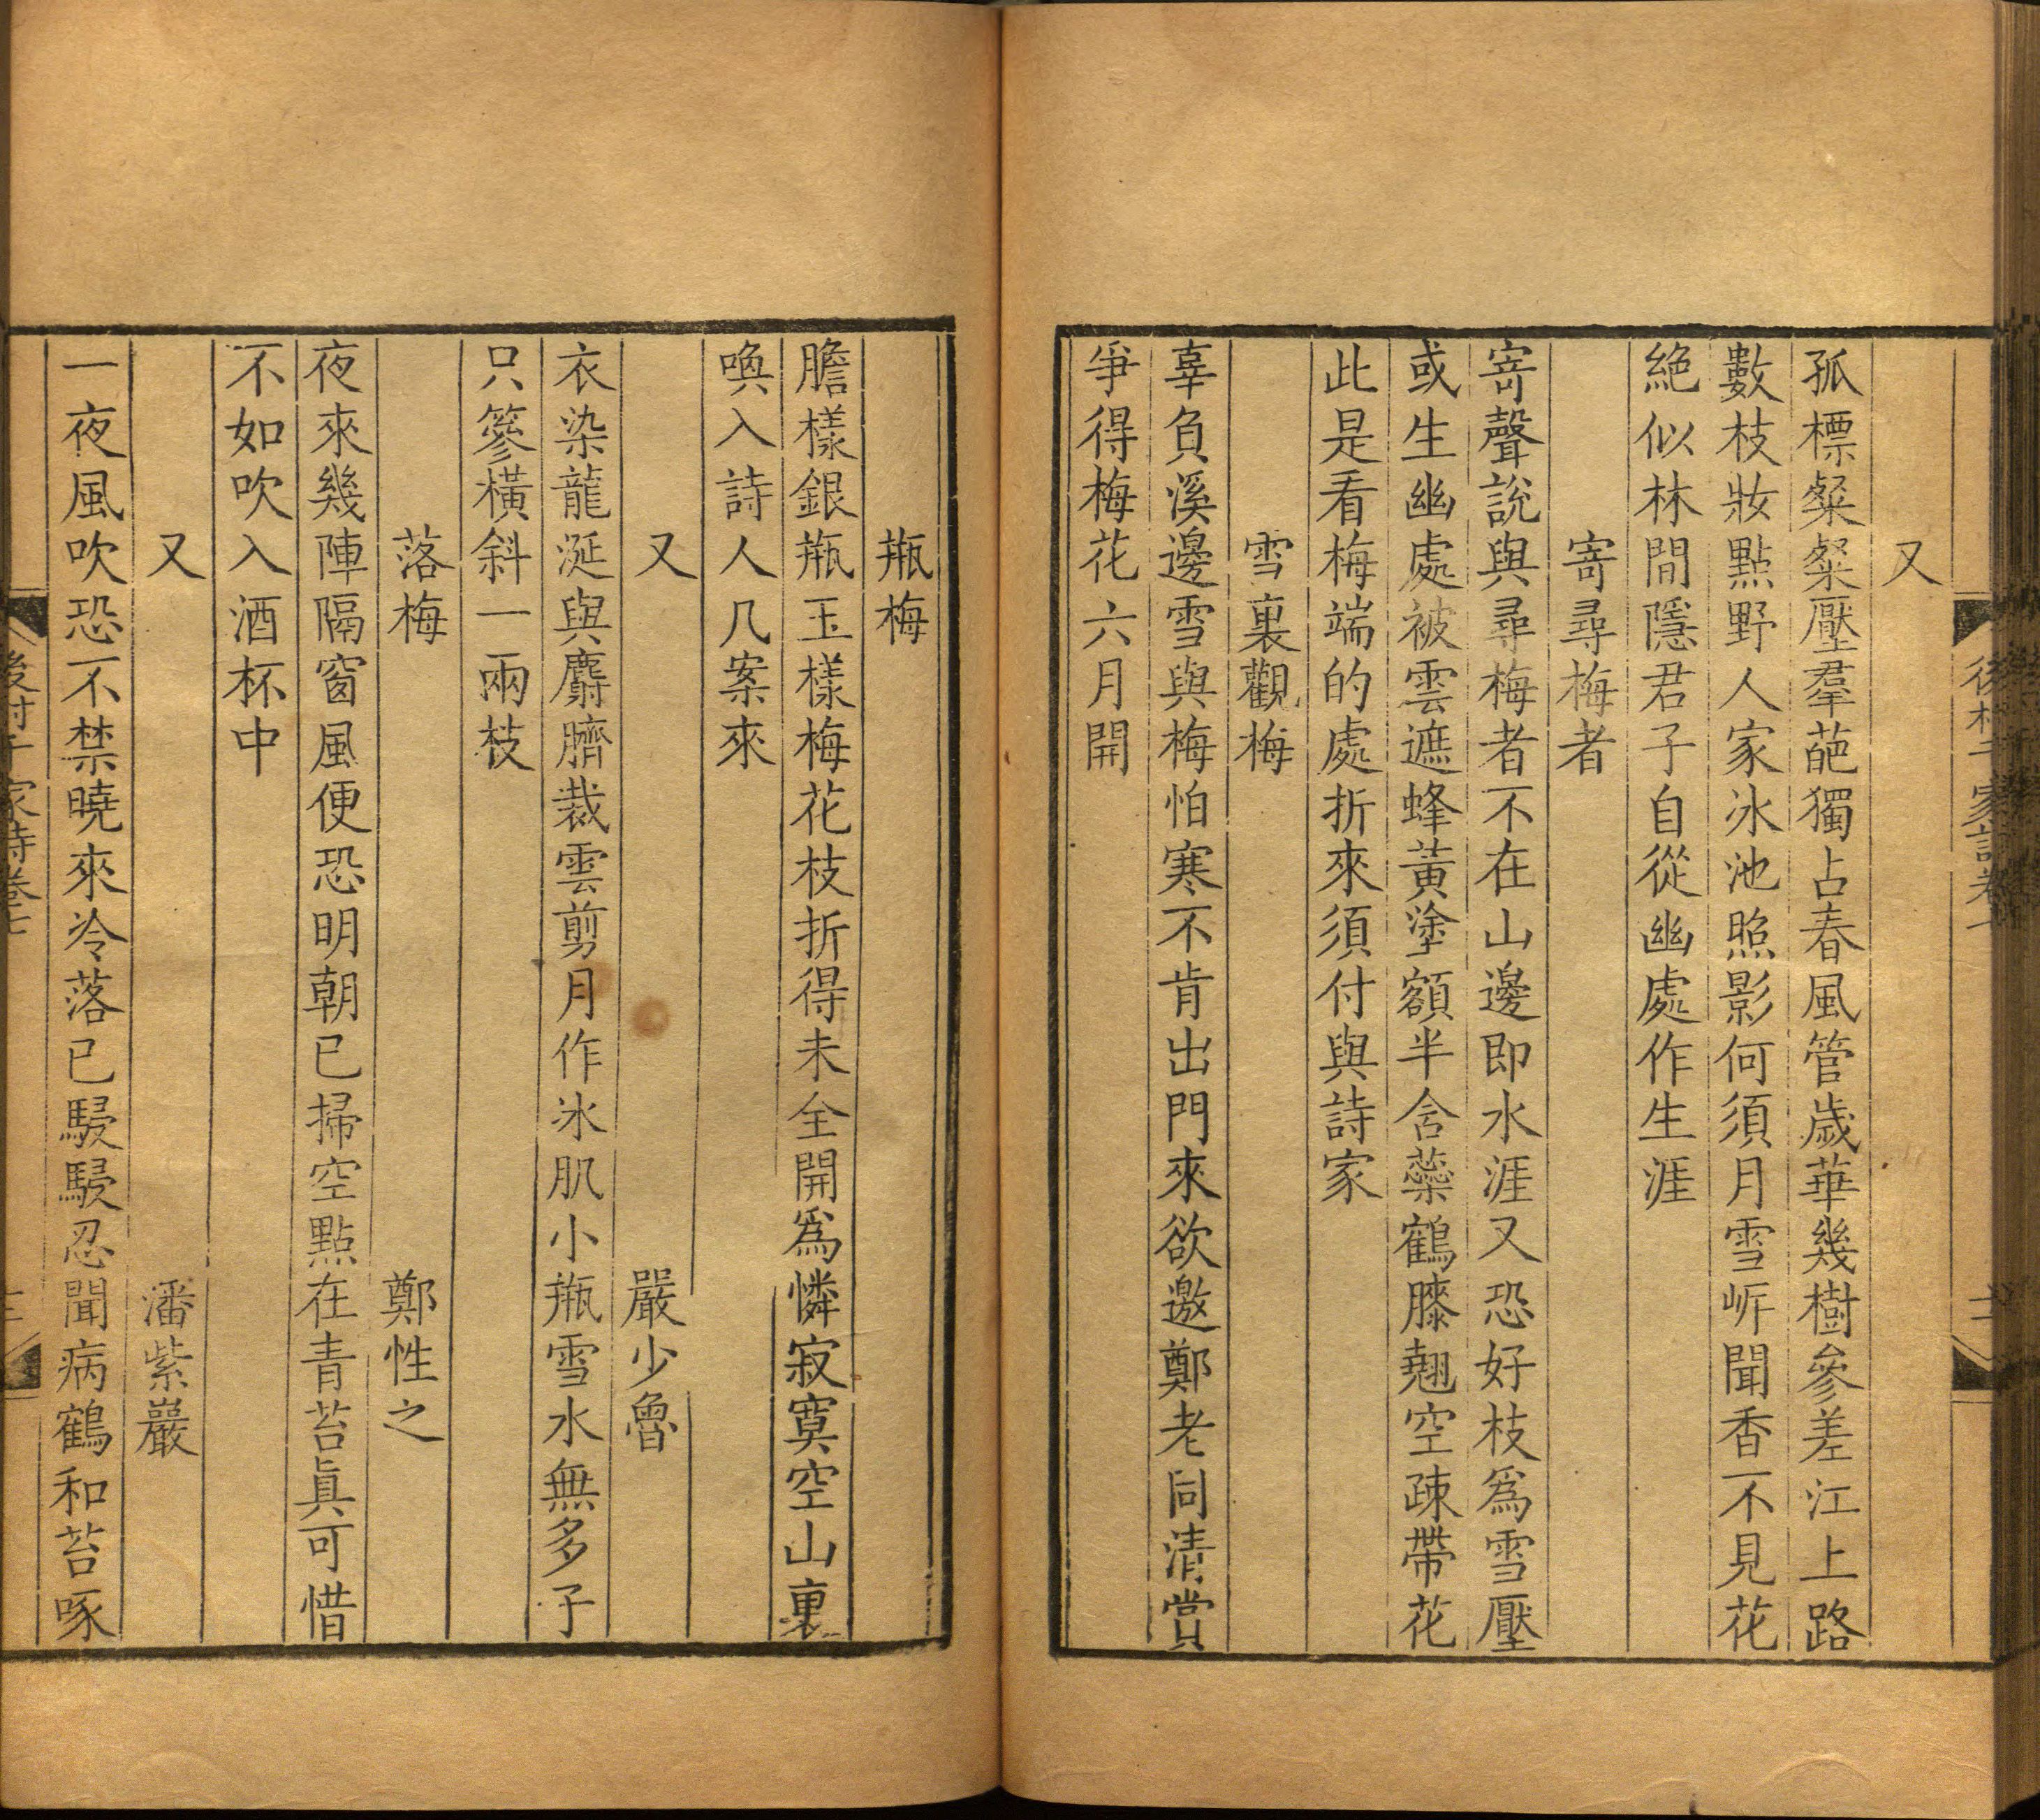 又
孤標粲粲壓羣葩獨占春風管歲華幾樹參差江上路
數枝妝點野人家冰池照影何須月雪岓聞香不見花
絶似林間隱君子自從幽處作生涯
寄尋梅者
寄聲説與尋梅者不在山邊即水涯又恐好枝爲雪壓
或生幽處被雲遮蜂黄塗額半含蘂鶴膝翹空疎帶花
此是看梅端的處折來須付與詩家
雪裏觀梅
辜負溪邊雪與梅怕寒不肯出門來欲邀鄭老同清賞
爭得梅花六月開
缾梅
膽樣銀缾玉樣梅花枝折得未全開爲憐寂寞空山裏
喚入詩人几案來
又 嚴少魯
衣染龍涎與麝臍裁雲剪月作冰肌小缾雪水無多子
只篸橫斜一兩枝
落梅 鄭性之
夜來幾陣隔窗風便恐明朝已掃空點在青苔眞可惜
不如吹入酒杯中
又 潘紫巖
一夜風吹恐不禁曉來冷落已駸駸忍聞病鶴和苔啄